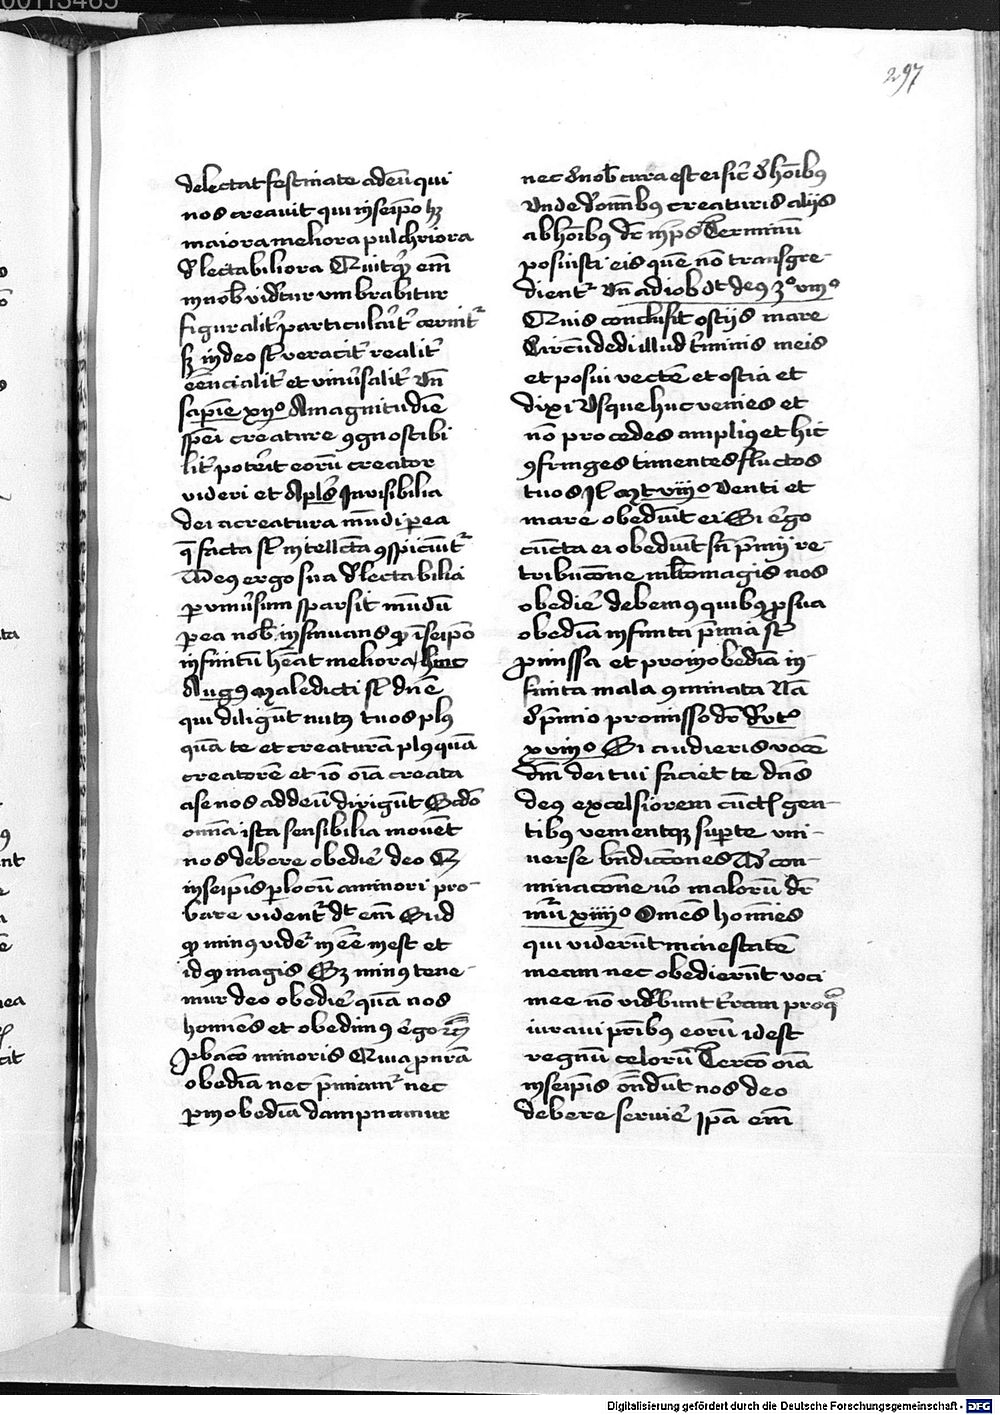 297
delectat festinate ad deū qui
nos creauit qui in seip̄o hꝫ
maiora meliora pulchriora
d̓lectabiliora Quitqͥd em̄
in nob̓ vid̓tur vmbrabitur
figuralit̓ particulait̓ cernit᷑
sꝫ in deo st̄ veracit̓ realit̓
eēncialit̓ et vniu̓salit̓ Vn̄
sapīe xiij° A magnitudīe
sp̄ei creature ꝯgnostibi
lit̓ pot̓it eorū creator
videri et Apl̓s Inuisibilia
dei a creatura mūdi ꝑ ea
q̄ facta st̄ intellecta ꝯspiciūt᷑
Deꝰ ergo sua d̓lectabilia
ꝑ vniu̓sum sparsit mūdū
ꝑ ea nob̓ insinuans ꝙ ī seip̄o
infinitū hēat meliora hinc
Augꝰ Maledicti st̄ dn̄e
qui diligūt nutꝰ tuos plꝰ
quā te et creaturā plꝰ quā
creatorē et iō oīa creata
a se nos ad deū dirigūt Scd̄o
omīa ista sensibilia mouēt
nos debere obedie̓ deo Et
in seip̄is ꝑ locū a minori pro-
bare vident᷑ dt̄ em̄ Sud
ꝙ minꝰ vide᷑ inēe inest et
id ꝙ magis Sꝫ minꝰ tene-
mur deo obedie̓ quā nos
homīes et obedimꝰ e̓go
ꝓbacō minoris Quia ꝓ nr̄a
obediā nec p̄miam᷑ nec
ꝑ inobediā dampnamur
nec d̓ nob̓ cura est ei sic̓ d̓ hoībꝰ
Vnde d̓ omībꝰ creaturis alijs
ab hoībꝰ dr̄ in ps̄ Terminū
posuisti eis quē nō transgre-
dient᷑ Vn̄ ad iob dt̄ deꝰ
Quis conclusit ostijs mare
Circūdedi illud t̓minis meis
et posui vectē et ostia et
dixi Vsque huc venies et
nō procedes ampliꝰ et hic
ꝯfringes tumentes fluctos
tuos Mt viij° Venti et
mare obediūt ei Si e̓go
cūcta ei obediūt sn̄ p̄mij re-
tribucōne ml̄tomagis nos
obedie̓ debemꝰ quibꝰ ꝓ sua
obediā infinita p̄mia st̄
ꝓmissa et pro inobediā in-
finita mala ꝯminata Nā
d̓ p̄mio promisso dr̄
xxviij° Si audieris vocē
dn̄i dei tui faciet te dn̄s
deꝰ excelsiorem cūctꝭ gen-
tibꝰ venientqꝫ suꝑ te vni-
uerse bn̄dicciones De con-
minacōne v̓o malorū dr̄
nūi xiiij° Omēs homīes
qui viderūt maiestatē
meam nec obedierūt voci
mee nō vid̓bunt t̓ram pro qᷓ
iuraui pr̄ibꝰ eorū idest
regnū celorū Tercō oīa
in seip̄is on̄dūt nos deo
debere seruie̓ Ipā em̄
Digitalisierung gefördert durch die Deutsche Forschungsgemeinschaft - DFG